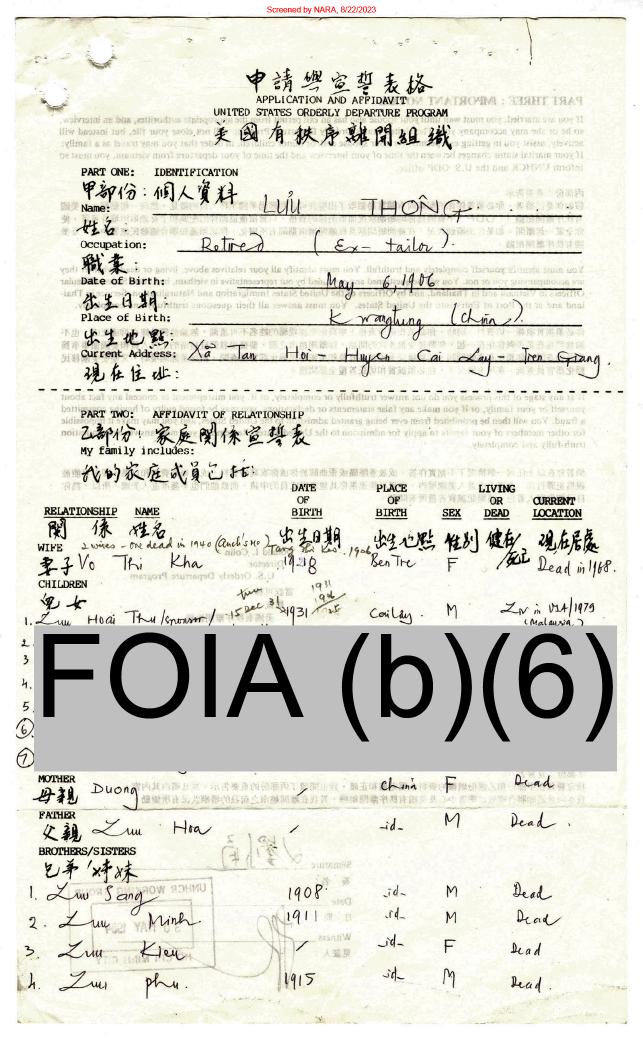 Screened by NARA, 8/22/2023
申請與宣誓表格
APPLICATION AND AFFIDAVIT
UNITED STATES ORDERLY DEPARTURE PROGRAM
美國有秩序離開組織
PART ONE: IDENTIFICATION
甲部份：個人資料
Name: LƯU THÔNG
姓名：
Occupation: Retired (Ex-tailor).
職業：
Date of Birth: May 6, 1906
出生日期：
Place of Birth: Kwangtung (China)
出生地點：
Current Address: Xã Tan Hoi - Huyen Cai Lay - Tien Giang.
現在住址：
PART TWO: AFFIDAVIT OF RELATIONSHIP
乙部份：家庭関係宣誓表
My family includes:
我的家庭成員包括：
RELATIONSHIP NAME DATE OF BIRTH PLACE OF BIRTH SEX LIVING OR DEAD CURRENT LOCATION
関係 姓名 出生日期 出生地點 性别 健存/死亡 現在居處
WIFE 2 wives - one dead in 1940
妻子 Vo Thi Kha Ben Tre F Dead in 1968.
CHILDREN
兒女
1. Luu Hoai Thu/sponsor/ 15 Dec 31 1931 Cailay. M Liv in USA/1979
(Malaysia)
2.
3
4.
5.
6.
7
FOIA (b)(6)
MOTHER
母親 Duong / China F Dead
FATHER
父親 Luu Hoa / -id- M Dead.
BROTHERS/SISTERS
兄弟/姊妹
1. Luu Sang 1908 -id- M Dead
2. Luu Minh 1911 -id- M Dead
3 Luu Kieu / -id- F Dead
4. Luu phu. 1915 -id- M Dead.